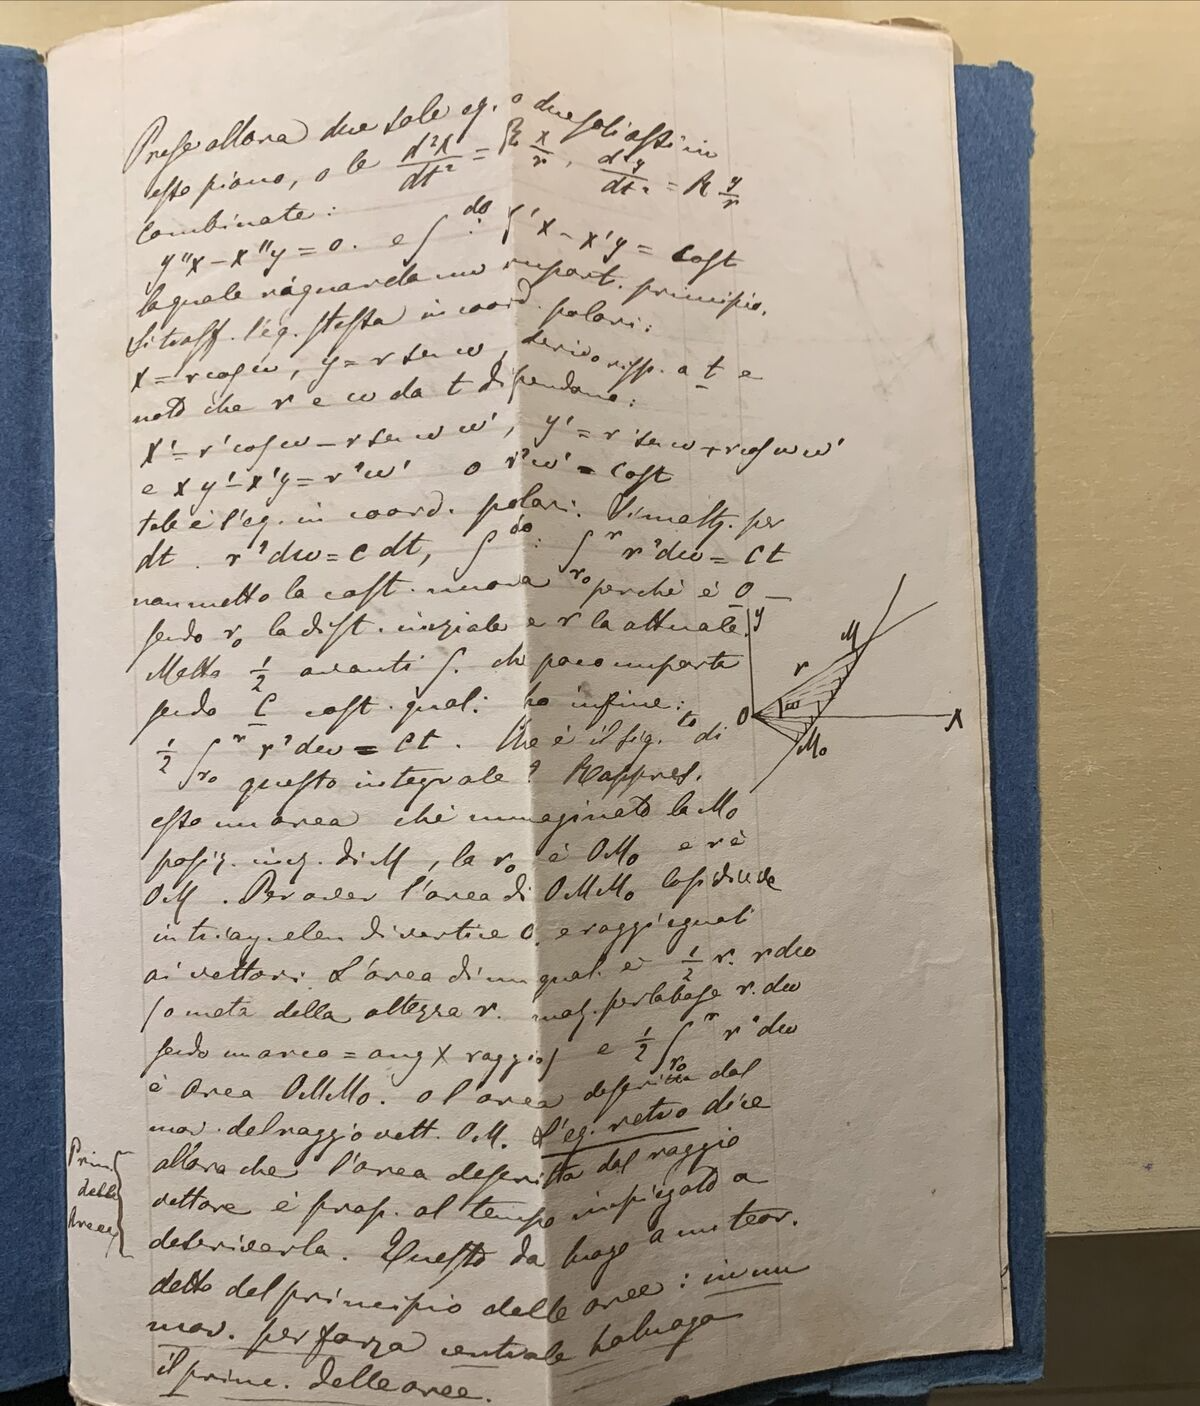 Prese allora due sole eq. o due soli assi in
esso piano, o le d²x/dt² = R x/r, d²y/dt² = R y/r
combinate:
y''x - x''y = 0. e ∫ do: y'x - x'y = Cost
la quale riguarda un import. principio.
Si trasf. l'eq. stessa in coord. polari:
x = r cos ω, y = r sen ω, derivo risp. a t e
noto che r e ω da t dipendono:
x' = r' cos ω - r sen ω ω', y' = r' sen ω + r cos ω ω'
e xy' - x'y = r²ω' o r²ω' = Cost
tale è l'eq. in coord. polari. Si moltp. per
dt. r²dω = C dt, ∫ do: ∫ r r₀ r²dω = Ct
non metto la cost. nuova perché è 0
sendo r₀ la dist. iniziale e r la attuale.
Metto 1/2 avanti ∫. che poco importa
sendo C cost. qual: ho infine:
1/2 ∫ r r₀ r²dω = Ct. Che è il sig. to di
questo integrale? Rappres.
esso un area chè immaginato la M₀
posiz. iniz. di M, la r₀ è OM₀ e r è
OM. Per aver l'area di OMM₀ la si divide
in triang. elem di vertice O. e raggi eguali
ai vettori. L'area di un qual. è 1/2 r. r dω
(o metà della altezza r. molz. per la base r. dω
sendo un arco = ang x raggio) e 1/2 ∫ r r₀ r²dω
è Area OMM₀. o l'area descritta dal
mov. del raggio vett. OM. L'eq. retro dice
allora che l'area descritta dal raggio
vettore è prop. al tempo impiegato a
descriverla. Questo da luogo a un teor.
detto del principio delle aree: in un
mov. per forza centrale ha luogo
il princ. delle aree.
Prin.
delle
Aree
y
M
r
ω
O
X
M₀